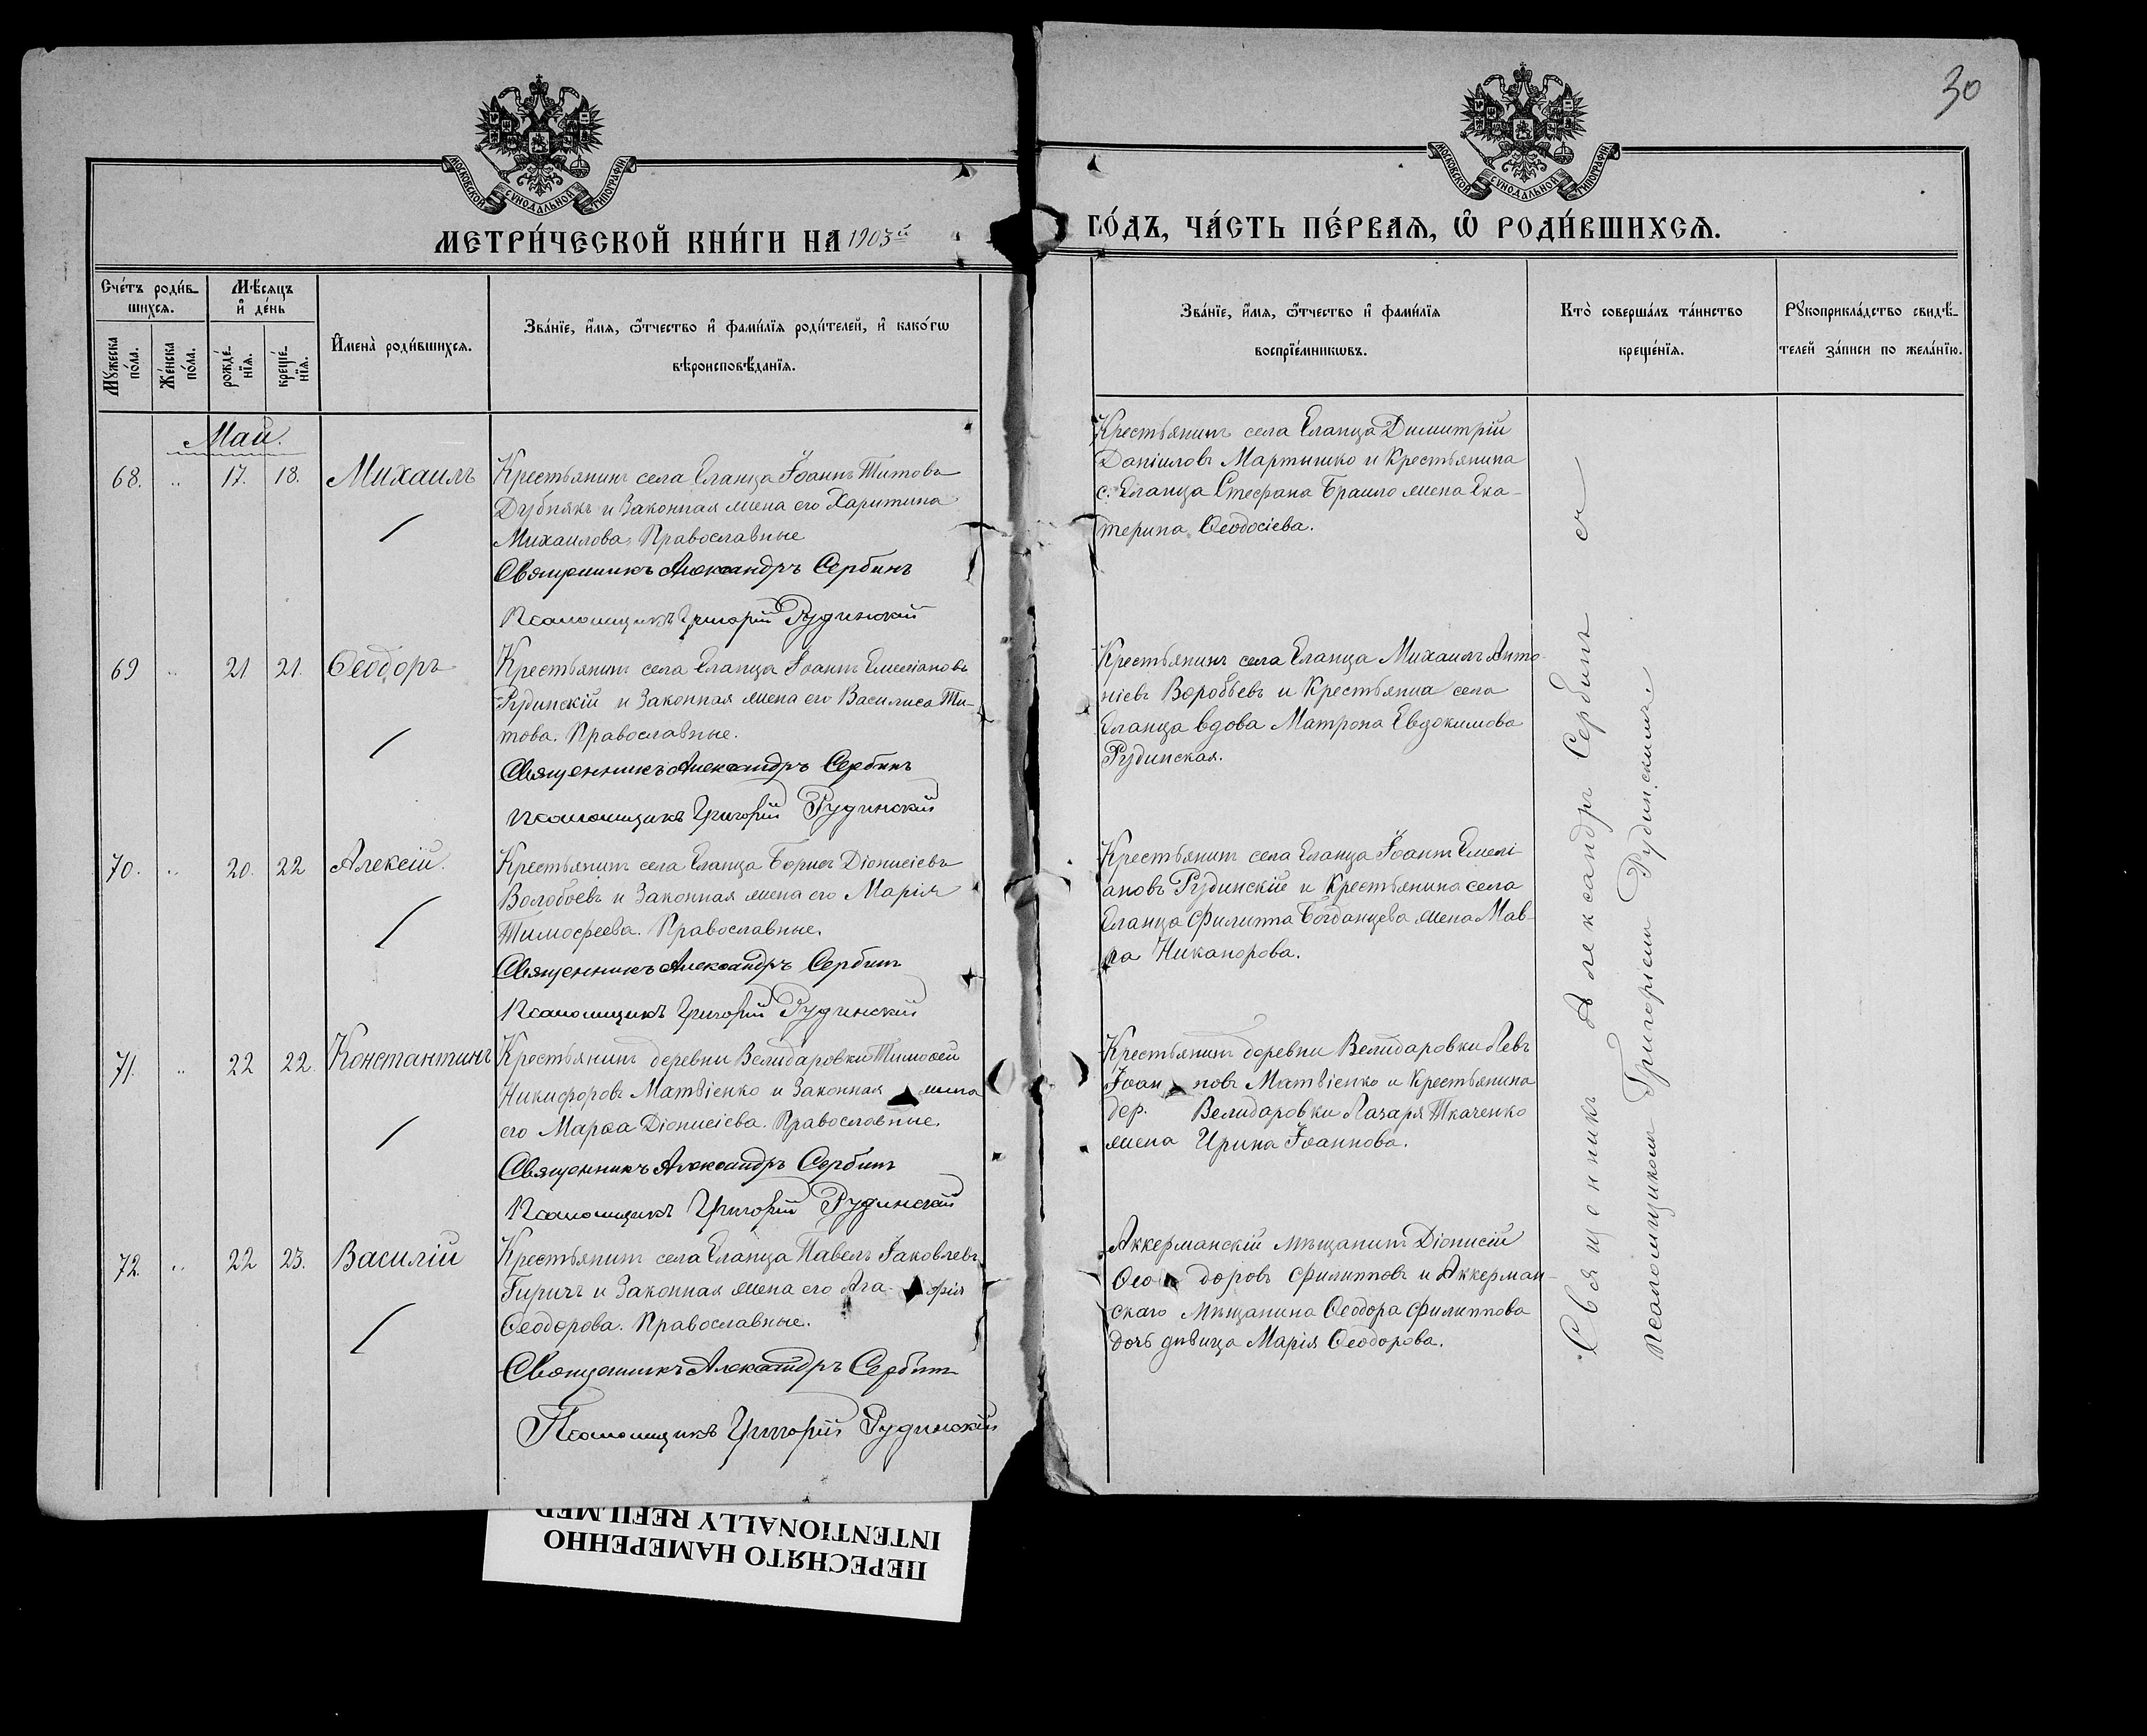 30
МОСКОВСКОЙ СѴНОДАЛЬНОЙ ТИПОГРАФІИ
МОСКОВСКОЙ СѴНОДАЛЬНОЙ ТИПОГРАФІИ
МЕТРИ́ЧЕСКОЙ КНИ́ГИ НА 1903й ГО́ДЪ, ЧА́СТЬ ПЕ́РВАѦ, Ѡ҆ РОДИ́ВШИХСѦ.
Сче́тъ роди́в-
шихсѧ.
Мѣ́сѧцъ
и҆ де́нь
Мꙋ́жеска
по́ла.
Же́нска
по́ла.
рожде́-
нїѧ.
креще́-
нїѧ.
И҆мена̀ роди́вшихсѧ.
Зва́нїе, и҆́мѧ, ѻ҆́тчество и҆ фами́лїѧ роди́телей, и҆ како́гѡ
вѣроисповѣ́данїѧ.
Зва́нїе, и҆́мѧ, ѻ҆́тчество и҆ фами́лїѧ
воспрїе́мникѡвъ.
Кто̀ соверша́лъ та́инство
креще́нїѧ.
Рꙋкоприкла́дство свидѣ́-
телей за́писи по жела́нїю.
Май.
68. " 17. 18. Михаилъ
Крестьянинъ села Еланца Іоаннъ Титовъ
Дубнякъ и Законная жена его Харитина
Михаилова, Православные
Священникъ Александръ Сербинъ
Псаломщикъ Григорій Рудинскій
Крестьянинъ села Еланца Димитрій
Даніиловъ Мартышко и Крестьянина
с. Еланца Стефана Браило жена Ека-
терина Ѳеодосіева.
69 " 21 21. Ѳеодоръ
Крестьянинъ села Еланца Іоаннъ Емеліановъ
Рудинскій и Законная жена его Василиса Ти-
това. Православные.
Священникъ Александръ Сербинъ
Псаломщикъ Григорій Рудинскій
Крестьянинъ села Еланца Михаилъ Анто-
ніевъ Воробьевъ и Крестьянка села
Еланца вдова Матрона Евдокимова
Рудинская.
70. " 20. 22 Алексій.
Крестьянинъ села Еланца Борисъ Діонисіевъ
Волобоевъ и Законная жена его Марія
Тимофеева. Православные.
Священникъ Александръ Сербинъ
Псаломщикъ Григорій Рудинскій
Крестьянинъ села Еланца Іоаннъ Емелі-
ановъ Рудинскій и Крестьянина села
Еланца Филиппа Богданцева жена Мав-
ра Никанорова.
71. " 22 22. Константинъ
Крестьянинъ деревни Велидаровки Тимофей
Никифоровъ Матвіенко и Законная жена
его Марѳа Діонисіева. Православные.
Священникъ Александръ Сербинъ
Псаломщикъ Григорій Рудинскій
Крестьянинъ деревни Велидаровки Левъ
Іоанновъ Матвіенко и Крестьянина
дер. Велидаровки Лазаря Ткаченко
жена Ирина Іоаннова.
72. " 22 23. Василій
Крестьянинъ села Еланца Павелъ Іаковлевъ
Гиричъ и Законная жена его Ага-фія
Ѳеодорова. Православные.
Священникъ Александръ Сербинъ
Псаломщикъ Григорій Рудинскій
Аккерманскій мѣщанинъ Діонисій
Ѳеодоровъ Филипповъ и Аккерман-
скаго мѣщанина Ѳеодора Филиппова
дочь дѣвица Марія Ѳеодорова.
Священникъ Александръ Сербинъ съ
псаломщикомъ Григоріемъ Рудинскимъ
ПЕРЕСНЯТО НАМЕРЕННО
INTENTIONALLY REFILMED